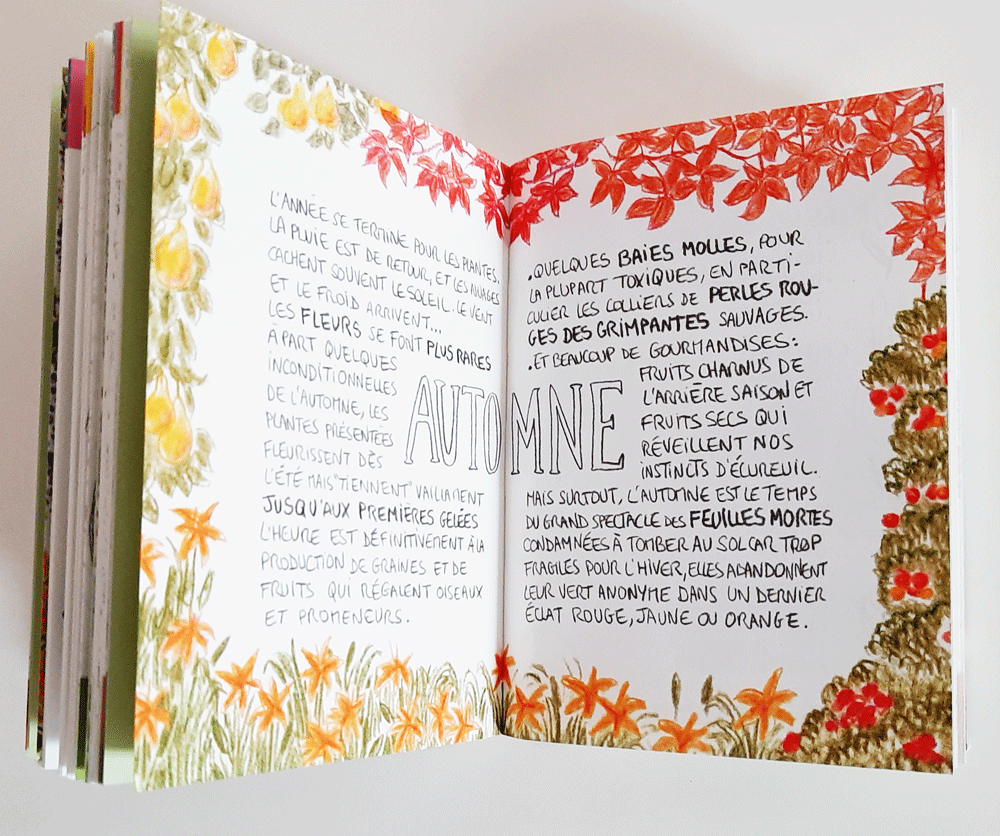 L'ANNÉE SE TERMINE POUR LES PLANTES.
LA PLUIE EST DE RETOUR, ET LES NUAGES
CACHENT SOUVENT LE SOLEIL. LE VENT
ET LE FROID ARRIVENT...
LES FLEURS SE FONT PLUS RARES
À PART QUELQUES
INCONDITIONNELLES
DE L'AUTOMNE, LES
PLANTES PRÉSENTÉES
FLEURISSENT DÈS
L'ÉTÉ MAIS "TIENNENT" VAILLAMENT
JUSQU'AUX PREMIÈRES GELÉES
L'HEURE EST DÉFINITIVEMENT À LA
PRODUCTION DE GRAINES ET DE
FRUITS QUI RÉGALENT OISEAUX
ET PROMENEURS.
AUTOMNE
.QUELQUES BAIES MOLLES, POUR
LA PLUPART TOXIQUES, EN PARTI-
CULIER LES COLLIERS DE PERLES ROU-
GES DES GRIMPANTES SAUVAGES.
.ET BEAUCOUP DE GOURMANDISES:
FRUITS CHARNUS DE
L'ARRIÈRE SAISON ET
FRUITS SECS QUI
RÉVEILLENT NOS
INSTINCTS D'ÉCUREUIL.
MAIS SURTOUT, L'AUTOMNE EST LE TEMPS
DU GRAND SPECTACLE DES FEUILLES MORTES
CONDAMNÉES À TOMBER AU SOL CAR TROP
FRAGILES POUR L'HIVER, ELLES ABANDONNENT
LEUR VERT ANONYME DANS UN DERNIER
ÉCLAT ROUGE, JAUNE OU ORANGE.